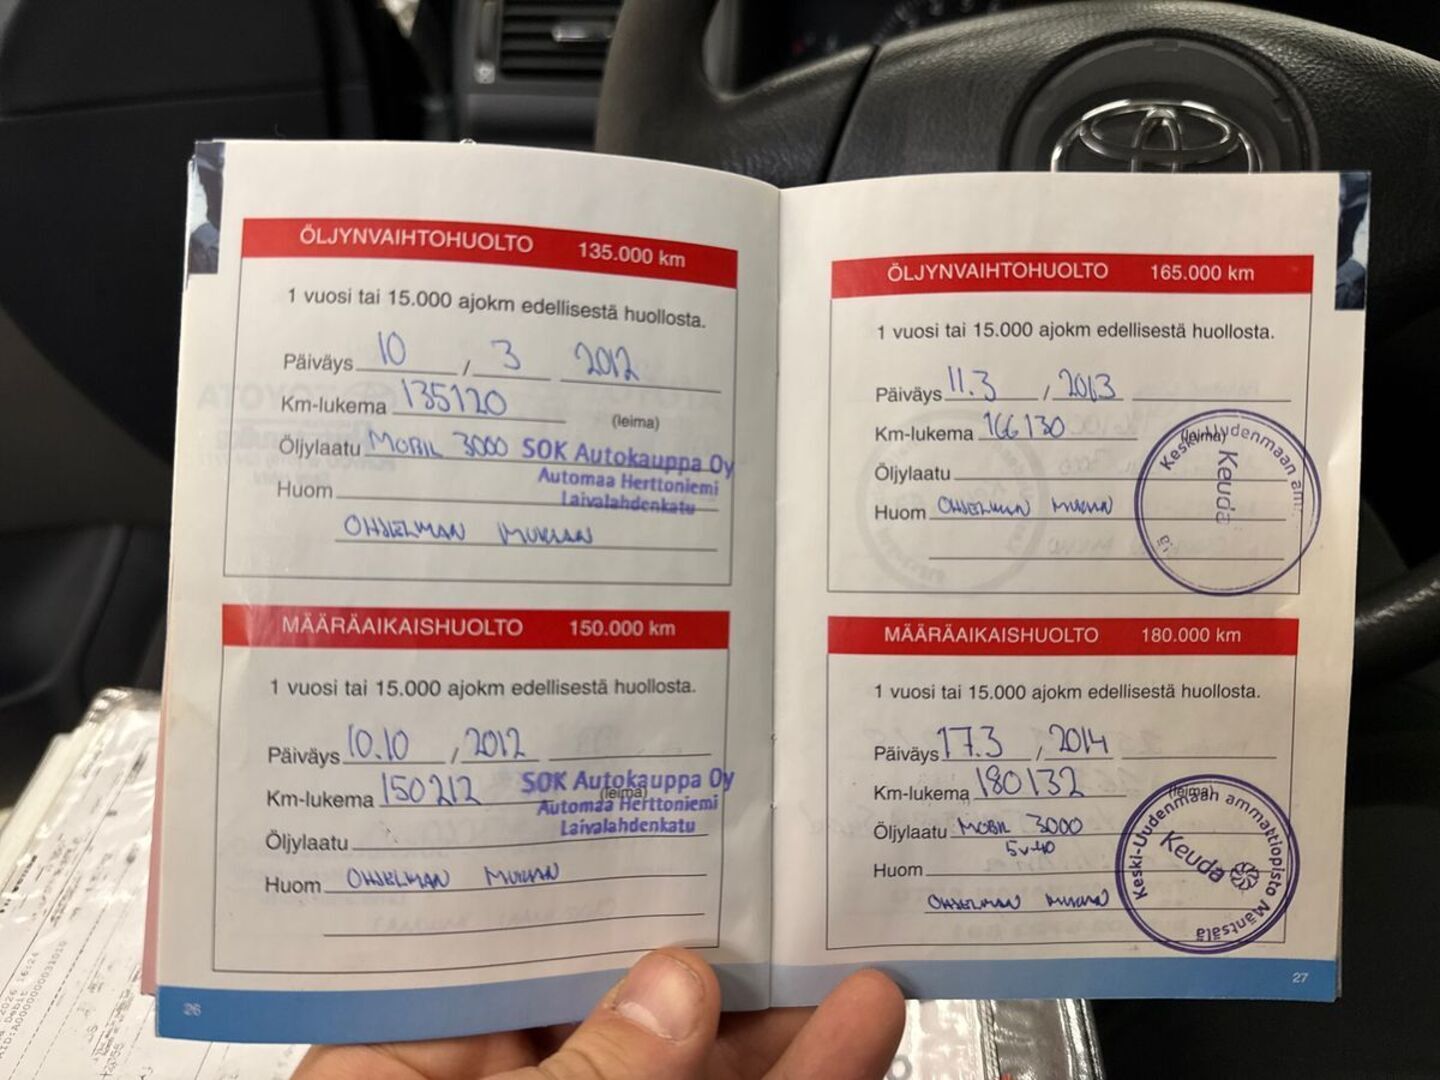 ÖLJYNVAIHTOHUOLTO 135.000 km
1 vuosi tai 15.000 ajokm edellisestä huollosta.
Päiväys 10 / 3 2012
Km-lukema 135120
(leima)
Öljylaatu MOBIL 3000
SOK Autokauppa Oy
Automaa Herttoniemi
Laivalahdenkatu
Huom
OHJELMAN MUKAAN
MÄÄRÄAIKAISHUOLTO 150.000 km
1 vuosi tai 15.000 ajokm edellisestä huollosta.
Päiväys 10.10 , 2012
Km-lukema 150212
(leima)
SOK Autokauppa Oy
Automaa Herttoniemi
Laivalahdenkatu
Öljylaatu
Huom OHJELMAN MUKAAN
26
ÖLJYNVAIHTOHUOLTO 165.000 km
1 vuosi tai 15.000 ajokm edellisestä huollosta.
Päiväys 11.3 / 2013
Km-lukema 166130
(leima)
Keski-Uudenmaan amm
Keuda
Öljylaatu
Huom OHJELMAN MUKAAN
MÄÄRÄAIKAISHUOLTO 180.000 km
1 vuosi tai 15.000 ajokm edellisestä huollosta.
Päiväys 17.3 , 2014
Km-lukema 180132
(leima)
Öljylaatu MOBIL 3000
5w40
Huom
OHJELMAN MUKAAN
Keski-Uudenmaan ammattiopisto Mäntsälä
Keuda
27